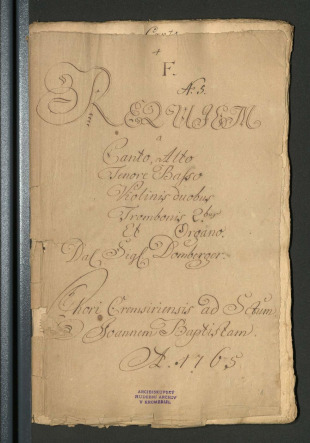 F.
N: 5.
REQUIEM
a
Canto, Alto
Tenore Basso
Violinis duobus
Trombonis 2bus
Et Organo.
Dal Sigl Donberger.
Chori Cremsiriensis ad Sctum
Joannem Baptistam.
A. 1765
ARCIBISKUPSKÝ
HUDEBNÍ ARCHIV
V KROMĚŘÍŽI.